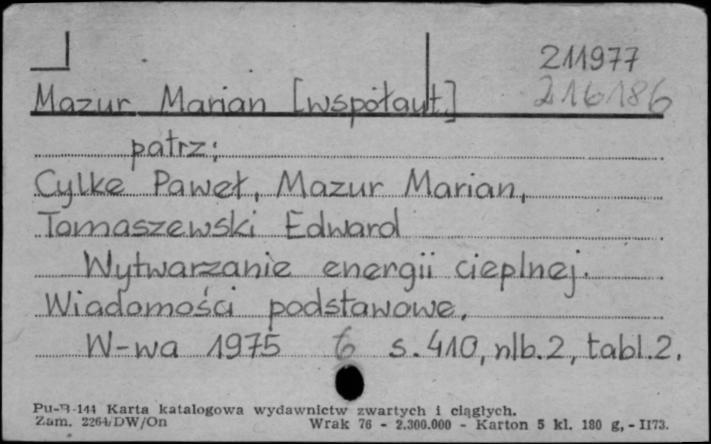 211977
Mazur Marian [współaut.] 216186
patrz:
Cylke Paweł, Mazur Marian,
Tomaszewski Edward
Wytwarzanie energii cieplnej.
Wiadomości podstawowe.
W-wa 1975 6 s. 410, nlb. 2, tabl. 2.
Pu-B-144 Karta katalogowa wydawnictw zwartych i ciągłych.
Zam. 2264/DW/On Wrak 76 - 2.300.000 - Karton 5 kl. 180 g, - II73.